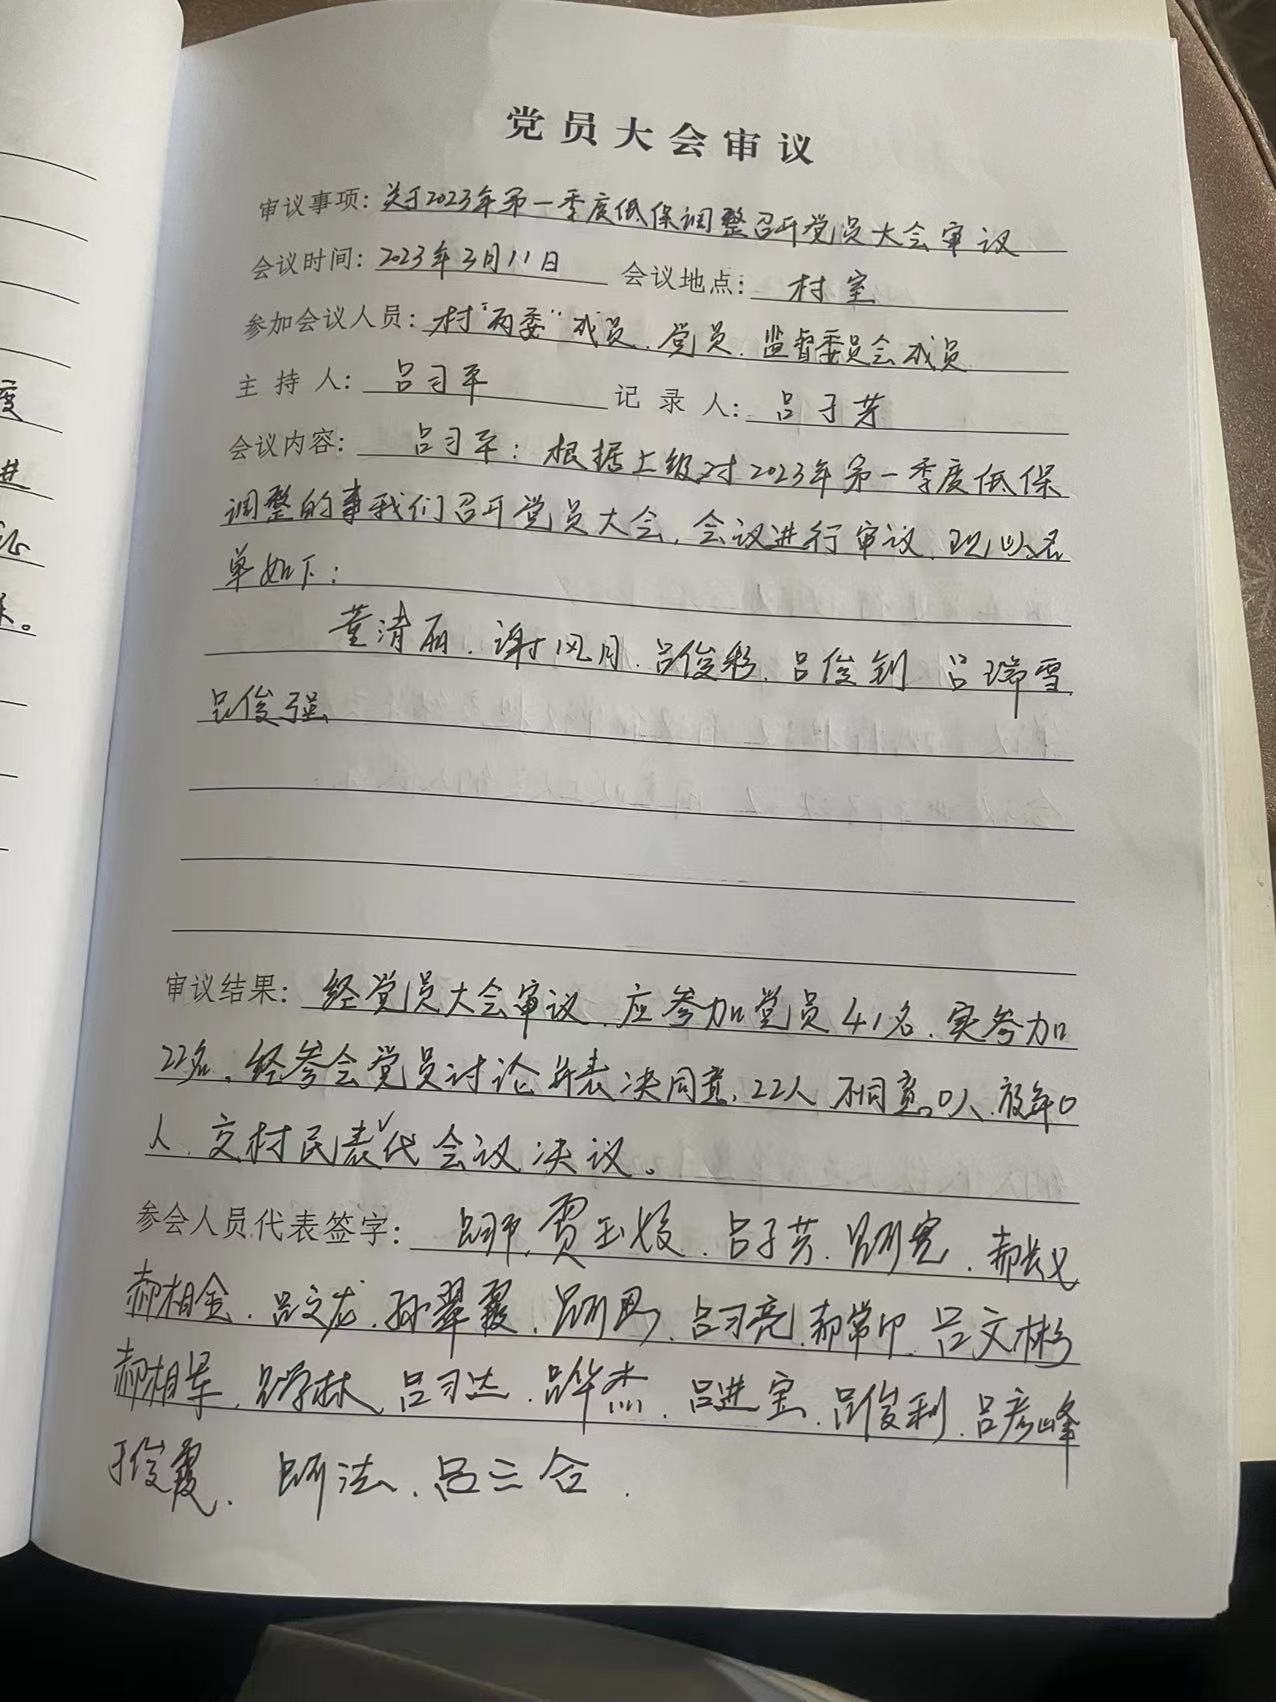 党员大会审议
审议事项：关于2023年第一季度低保调整召开党员大会审议
会议时间：2023年3月11日 会议地点：村室
参加会议人员：村"两委"成员、党员、监督委员会成员
主持人：吕习平 记录人：吕子芳
会议内容：吕习平：根据上级对2023年第一季度低保
调整的事我们召开党员大会，会议进行审议、现将名
单如下：
董清丽、谢风月、吕俊彩、吕俊钊 吕瑞雪、
吕俊强
审议结果：经党员大会审议、应参加党员41名、实参加
22名，经参会党员讨论并表决同意、22人 不同意。0人、放弃0
人、交村民代表会议决议。
参会人员代表签字：吕习平、贾玉姣、吕子芳、
郝相金、吕文龙、孙翠霞、吕习亮、郝常印、吕文彬
郝相军、吕学林、吕习达、吕华杰、吕进宝、吕俊利、吕彦峰
于俊霞、吕三合、
度
进